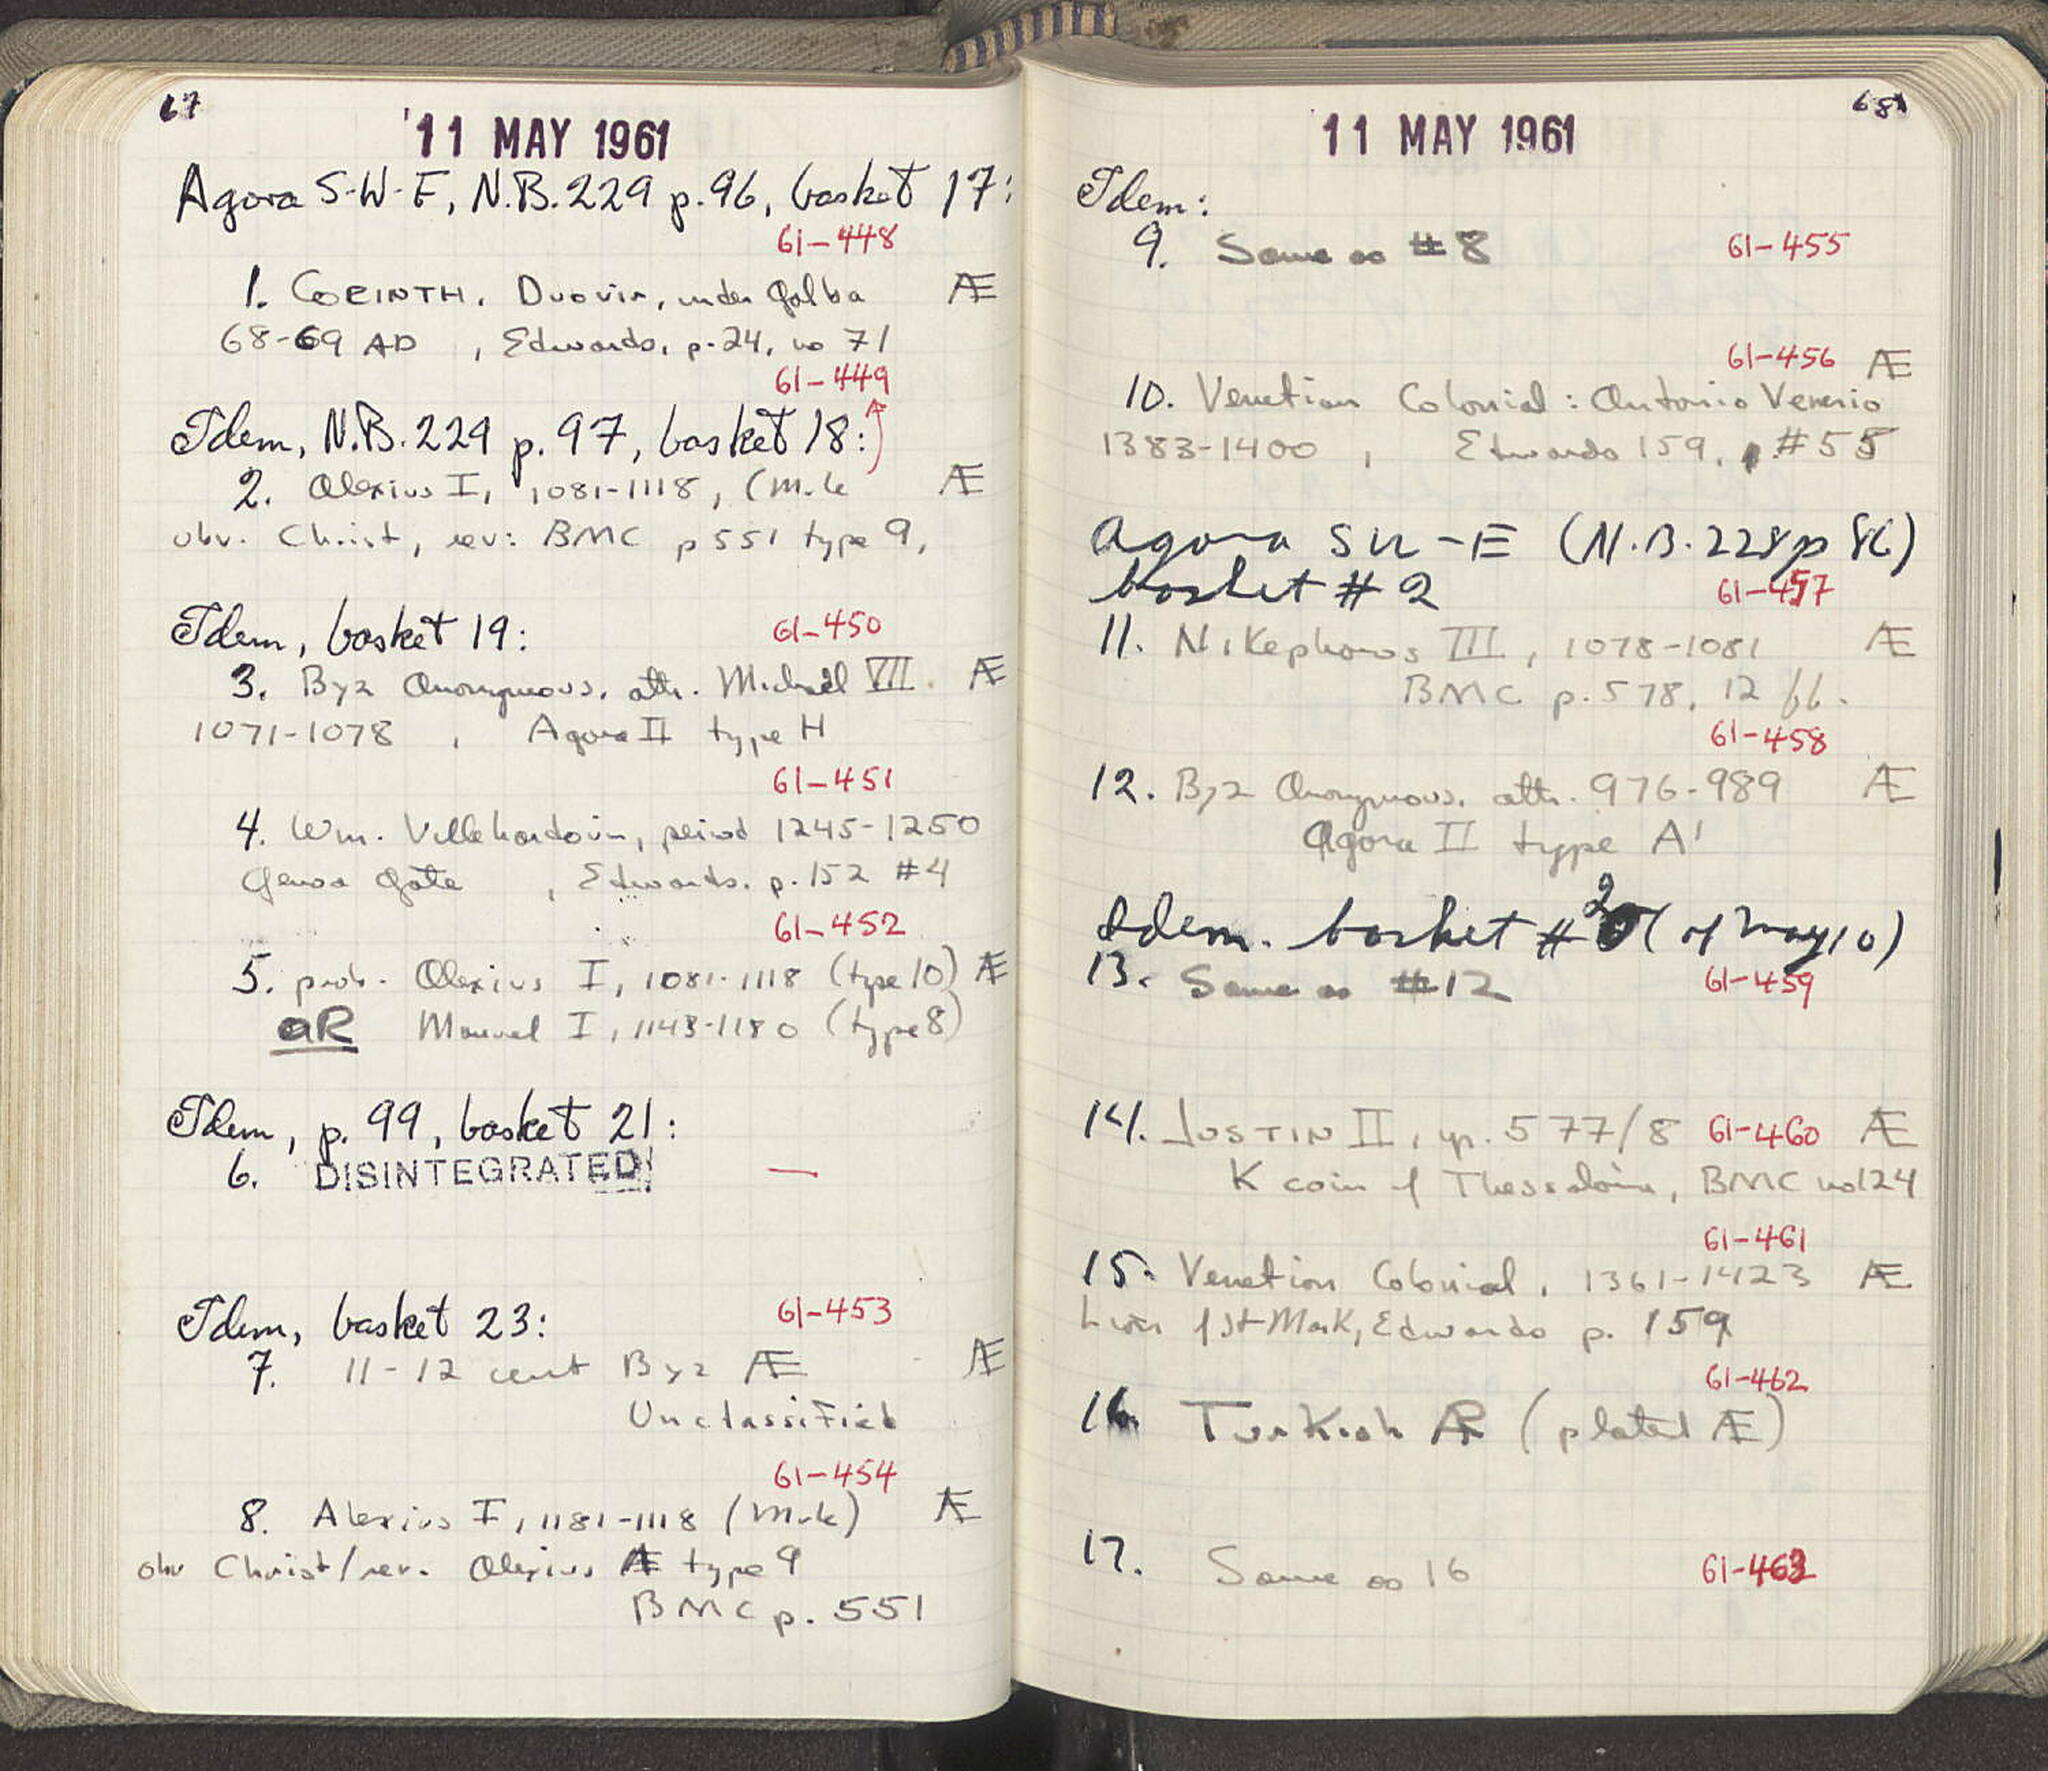 67
11 MAY 1961
Agora S-W-E, N.B. 229 p. 96, basket 17:
61-448
1. CORINTH. Duovir, under Galba Æ
68-69 AD , Edwards, p. 24, no 71
61-449
Idem, N.B. 229 p. 97, basket 18:
2. Alexius I, 1081-1118, (M.le Æ
obv. Christ, rev: BMC p 551 type 9,
Idem, basket 19: 61-450
3. Byz Anonymous. attr. Michael VII. Æ
1071-1078 , Agora II type H
61-451
4. Wm. Villehardouin, period 1245-1250
Genoa Gate , Edwards. p. 152 #4
61-452
5. prob. Alexius I, 1081-1118 (type 10) Æ
OR Manuel I, 1143-1180 (type 8)
Idem, p. 99, basket 21:
6. DISINTEGRATED! —
Idem, basket 23: 61-453
7. 11-12 cent Byz Æ Æ
Unclassified
61-454
8. Alexius I, 1181-1118 (M.le) Æ
obv Christ/rev. Alexius Æ type 9
BMC p. 551
68
11 MAY 1961
Idem:
9. Same as #8 61-455
61-456 Æ
10. Venetian Colonial: Antonio Venerio
1383-1400 , Edwards 159, #55
Agora SW-E (N.B. 228 p 86)
basket #2 61-457
11. Nikephoros III, 1078-1081 Æ
BMC p. 578, 12 ff.
61-458
12. Byz Anonymous. attr. 976-989 Æ
Agora II type A'
Idem. basket #2 (of May 10)
13. Same as #12 61-459
14. JUSTIN II, yr. 577/8 61-460 Æ
K coin of Thessalonica, BMC no 124
61-461
15. Venetian Colonial, 1361-1423 Æ
Lion of St Mark, Edwards p. 159
61-462
16 Turkish AR (plated Æ)
17. Same as 16 61-463